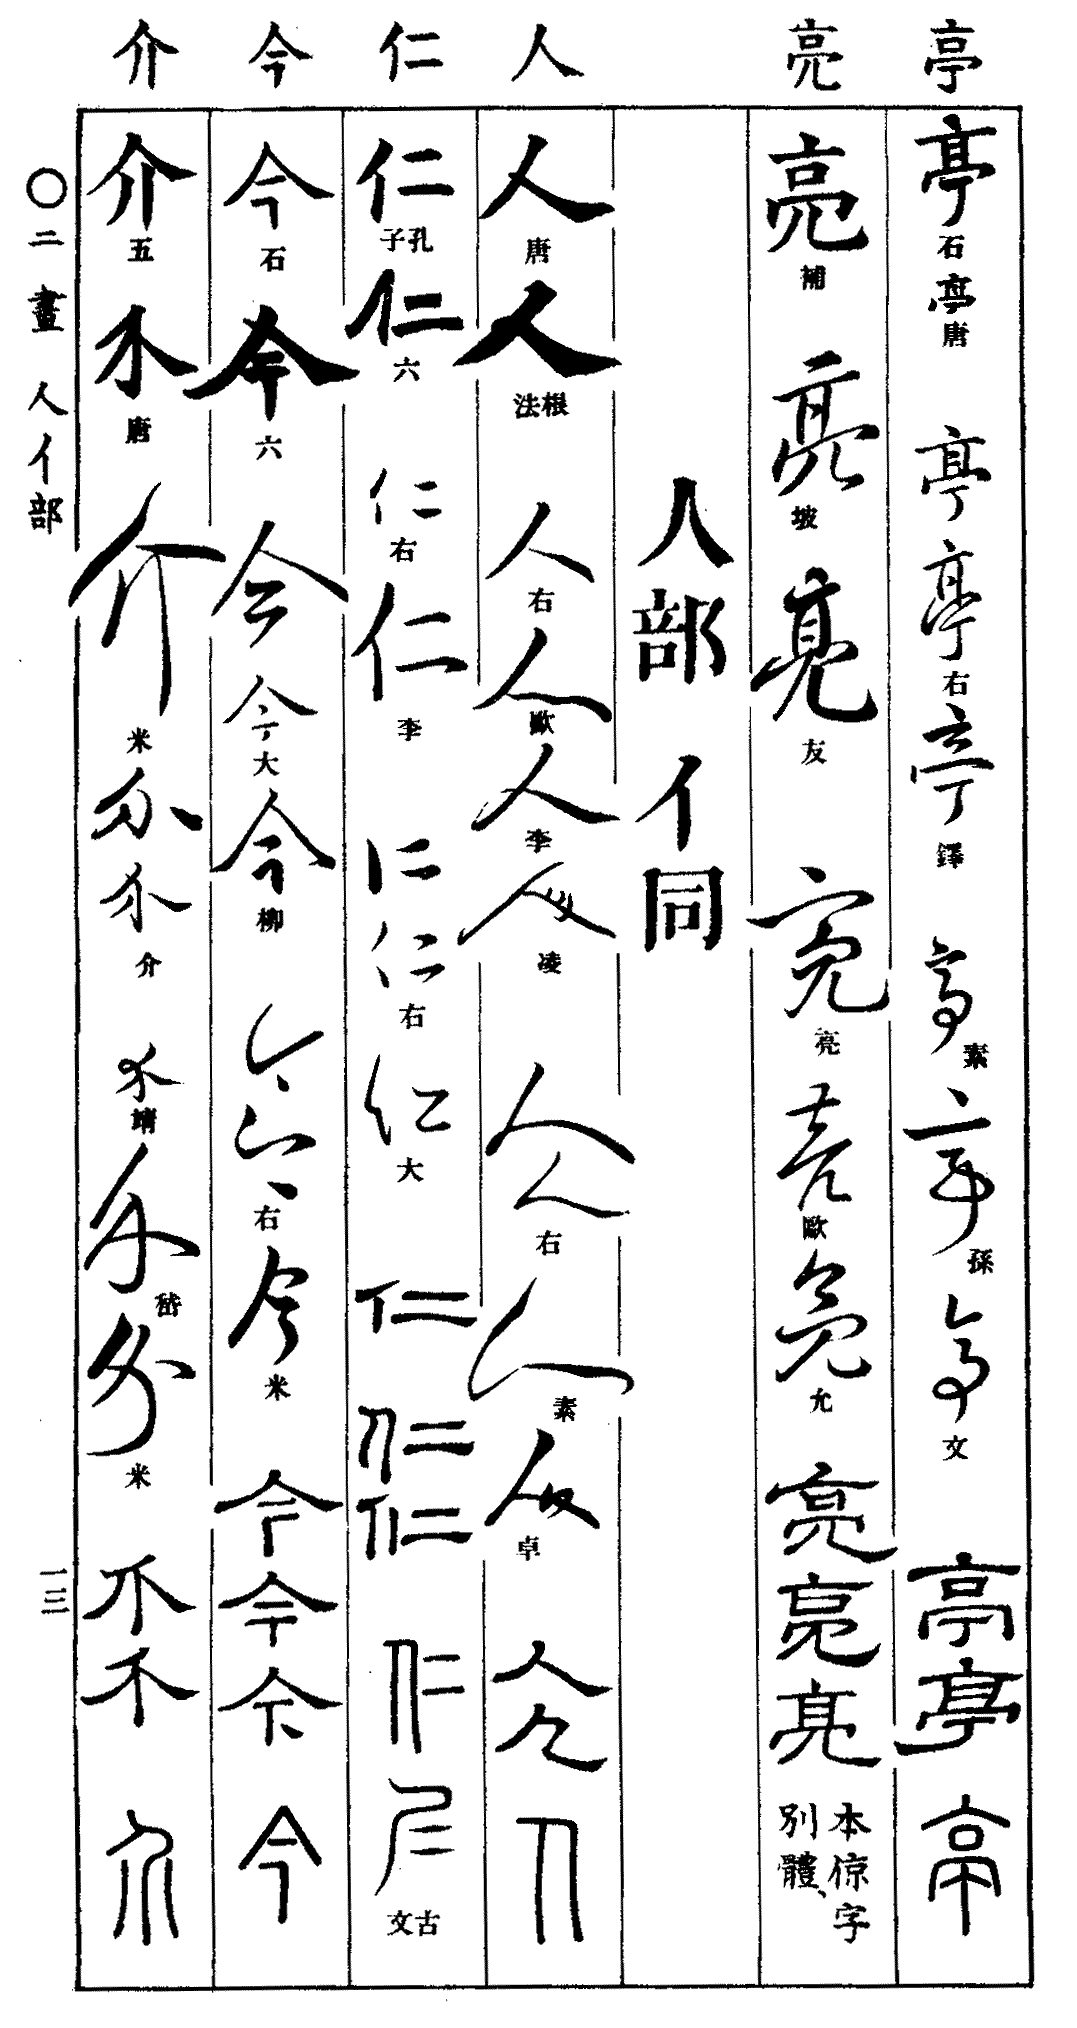 亭 亮 人 仁 今 介
亭 石 亭 唐 亭 亭 右 亭 鐸 亭 素 亭 孫 亭 文 亭 亭 亭
亮 補 亮 坡 亮 友 亮 亮 亮 歐 亮 允 亮 亮 亮 本倞字別體、
人部 亻同
人 唐 人 根法 人 右 人 歐 人 李 人 凌 人 人 右 人 素 人 卓 人 人 人
仁 孔子 仁 六 仁 右 仁 李 仁 仁 右 仁 大 仁 仁 仁 仁 𡰥 古文
今 石 今 六 今 今 大 今 柳 今 今 右 今 米 今 今 今 今
介 五 介 唐 介 米 介 介 介 介 靖 介 介 米 介 介 介
〇二畫 人亻部 一三